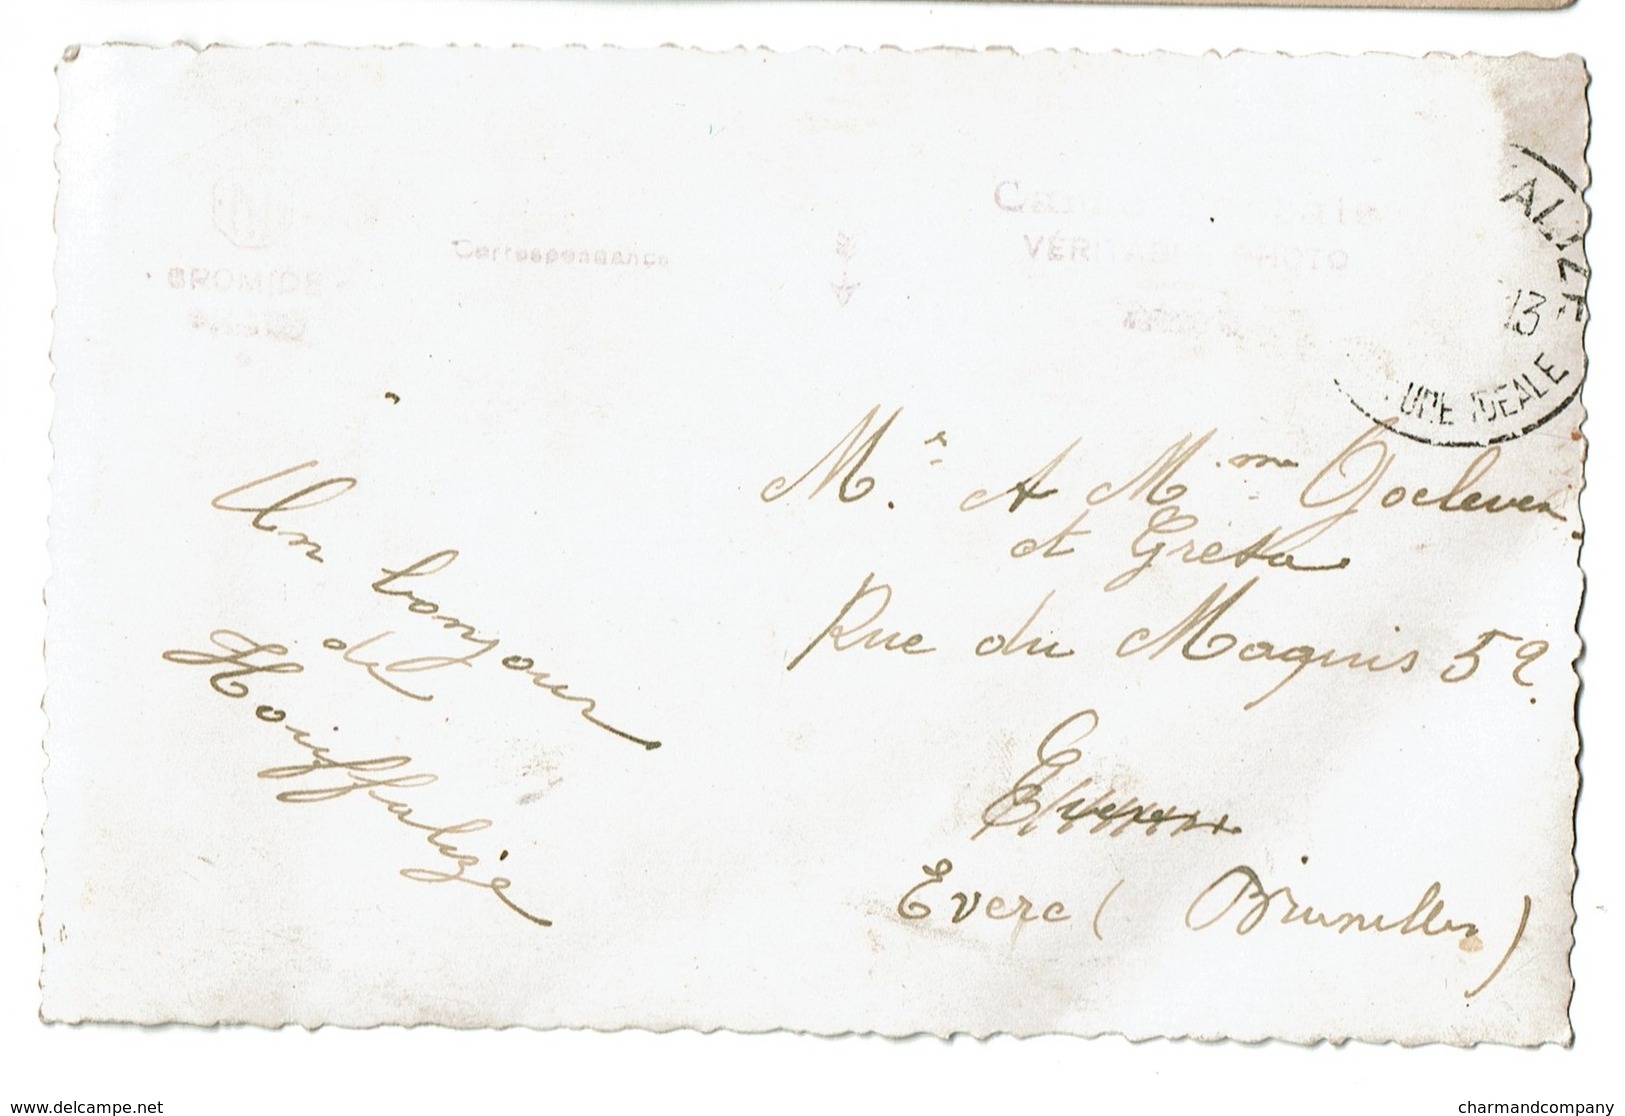 BROMIDE
Correspondance
Carte Postale
VÉRITABLE PHOTO
ALIZE
13
URE IDEALE
Un bonjour
de
Houffalize
Mr. et Mme
et Greta
Rue du Maquis 52.
Evere (Bruxelles)
www.delcampe.net
charmandcompany